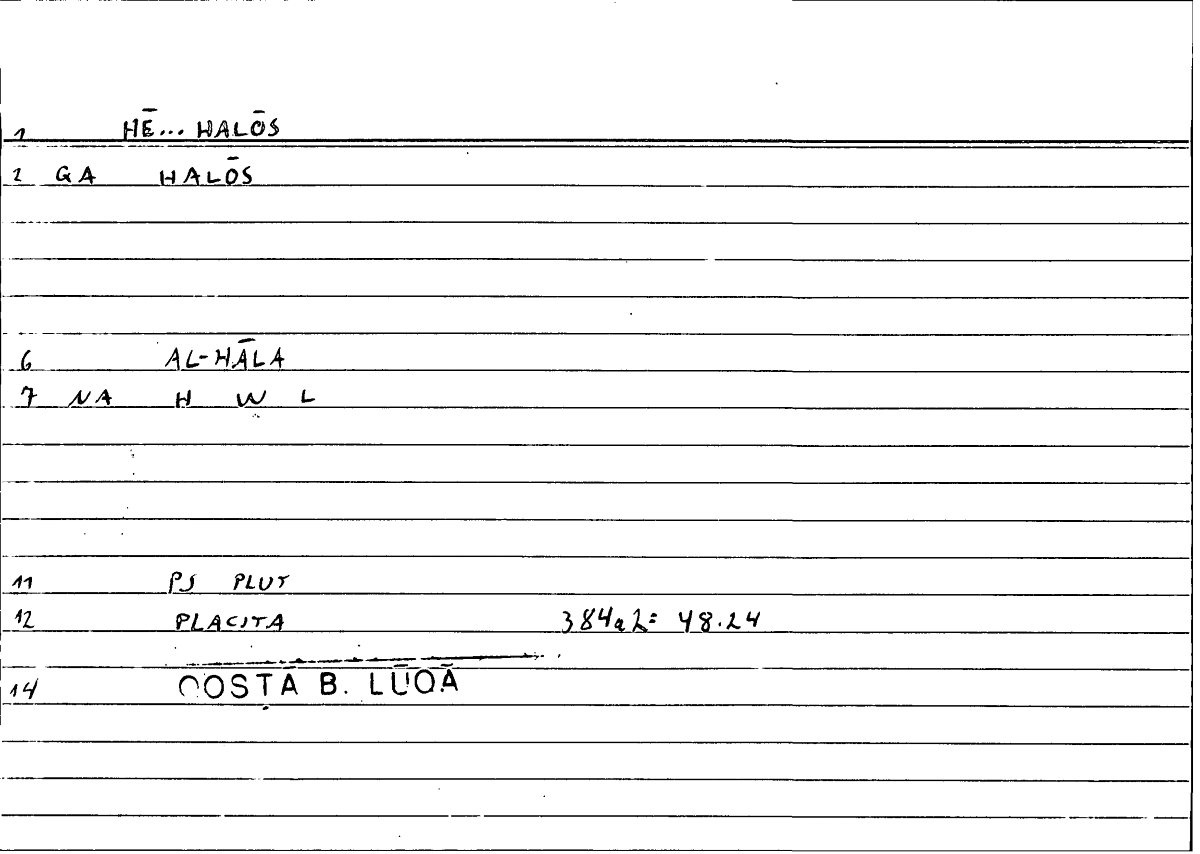 1 HĒ... HALŌS
2 GA HALŌS
6 AL-HĀLA
7 NA H W L
11 PS PLUT
12 PLACITA 384a2= 48.24
14 QOSṬĀ B. LŪQĀ